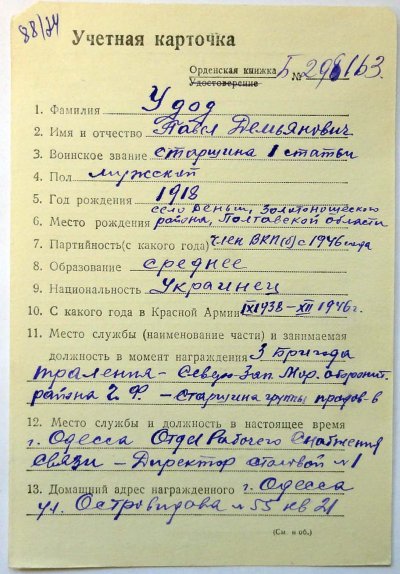 88/24
Учетная карточка
Орденская книжка Б
Удостоверение №296163.
1. Фамилия Удод
2. Имя и отчество Павел Демьянович
3. Воинское звание старшина 1 статьи
4. Пол мужской
5. Год рождения 1918
село Деньги, Золотоношского
6. Место рождения района, Полтавской области
7. Партийность(с какого года) член ВКП(б) с 1946 года
8. Образование среднее
9. Национальность Украинец
10. С какого года в Красной Армии IX 1938 – XII 1946 г.
11. Место службы (наименование части) и занимаемая
должность в момент награждения 3 Бригада
траления – Северо-Зап. Мор. оборонит.
района – старшина группы
12. Место службы и должность в настоящее время
г. Одесса Отдел Рабочего Снабжения
связи – Директор столовой №1
13. Домашний адрес награжденного г. Одесса
ул. Островидова №55 кв 21
(См. н об.)